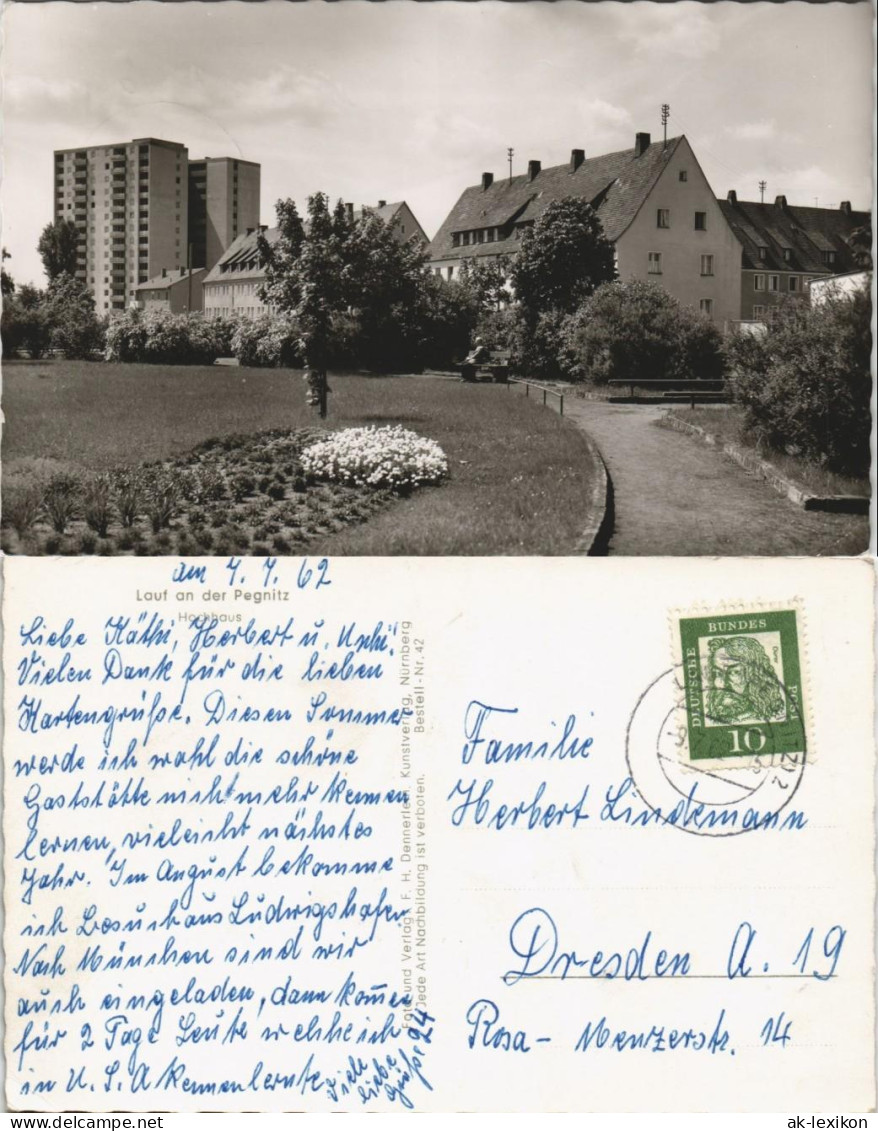 am 7.7.62
Lauf an der Pegnitz
Hochhaus
Liebe Käthi, Herbert u. Uschi!
Vielen Dank für die lieben
Kartengrüße. Diesen Sommer
werde ich wohl die schöne
Gaststätte nicht mehr kennen
lernen, vieleicht nächstes
Jahr. Im August bekomme
ich Besuch aus Ludwigshafen
Nach München sind wir
auch eingeladen, dann kom̅e
für 2 Tage Leute welche ich
in U.S.A kennenlernte
Viele
liebe
Grüße
Foto und Verlag: F. H. Dennerlein, Kunstverlag, Nürnberg
Jede Art Nachbildung ist verboten. Bestell-Nr. 42
DEUTSCHE BUNDES POST
10
Familie
Herbert Lindemann
Dresden A. 19
Rosa-Menzerstr. 14
ak-lexikon